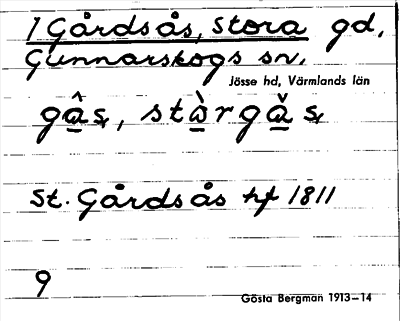 1 Gårdsås, Stora gd,
Gunnarskogs sn,
Jösse hd, Värmlands län
gâ̱s, stò̱rgǎ̱s
St. Gårdsås hf 1811
9
Gösta Bergman 1913—14